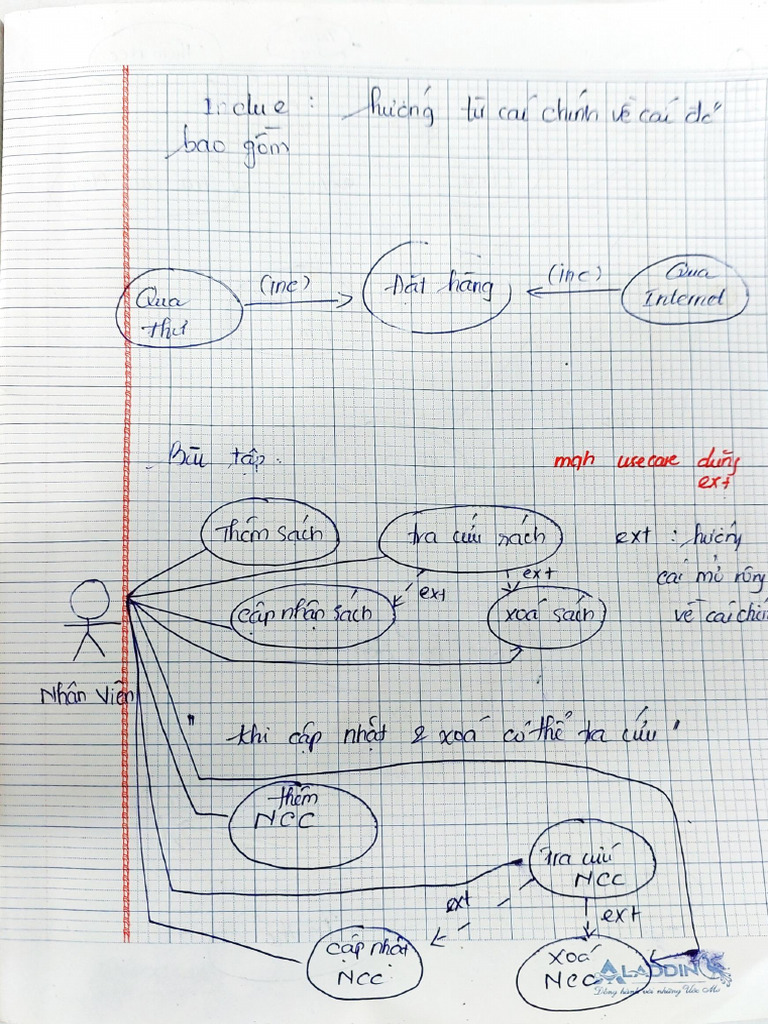 Inclue : hướng từ cái chính về cái đc
bao gồm
Qua thư
(inc)
Đặt hàng
(inc)
Qua Internet
Bài tập.
mqh usecase dùng
ext
Thêm sách
tra cứu sách
ext : hướng
cái mở rộng
về cái chín
ext
ext
cập nhập sách
xoá sách
Nhân Viên
" khi cập nhật & xoá có thể tra cứu "
thêm
NCC
Tra cứu
NCC
ext
ext
cập nhật
NCC
xoá
NCC
ALADDIN
Đồng hành với những Ước Mơ